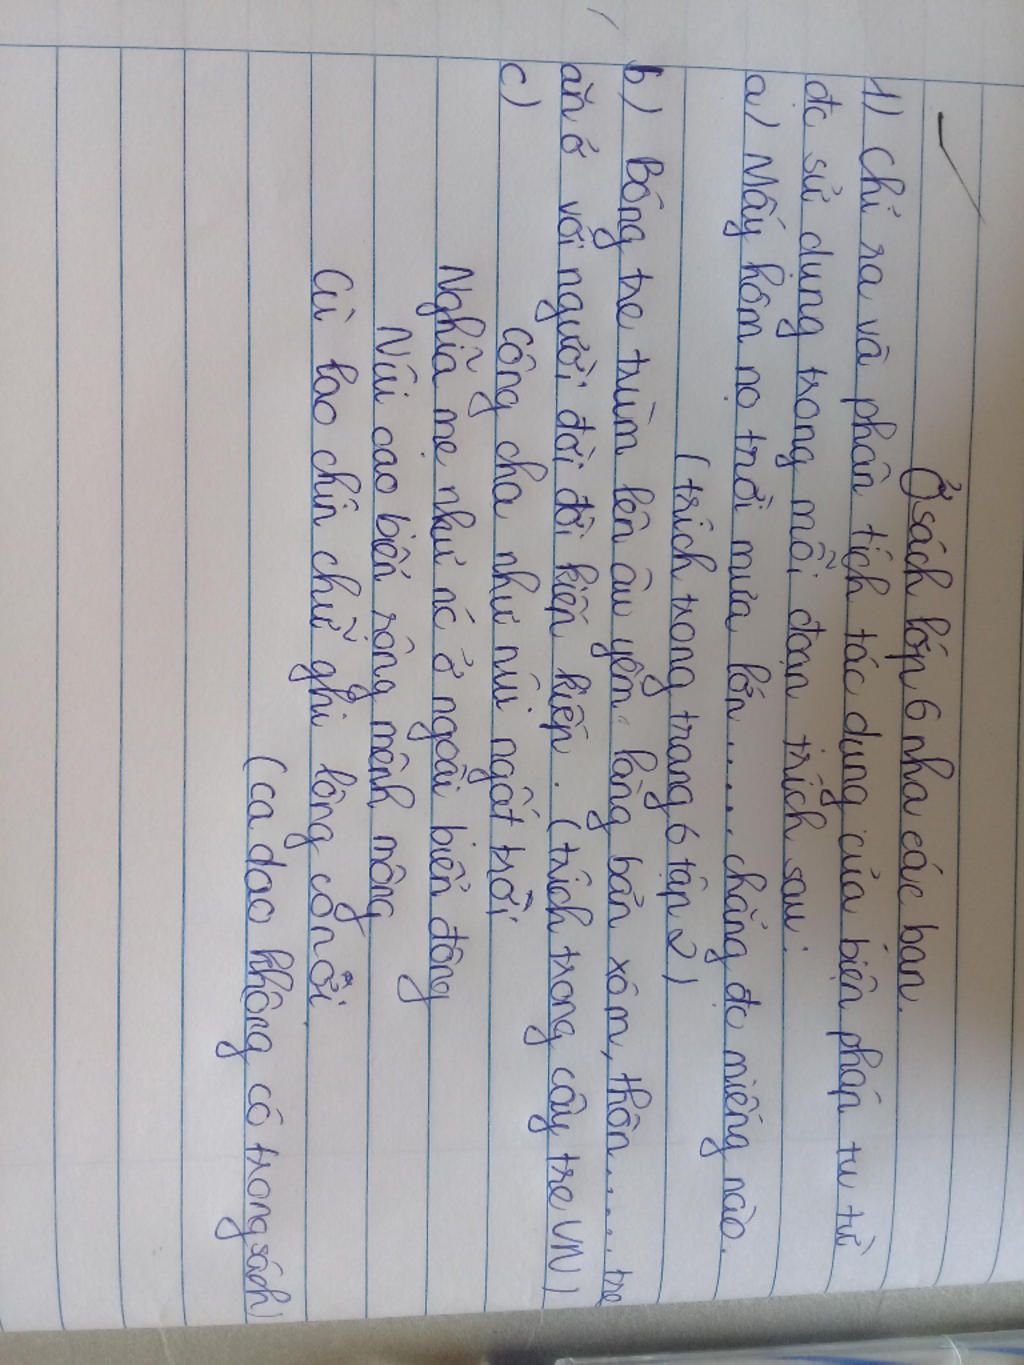 Ở sách lớp 6 nha các bạn.
1) Chỉ ra và phân tích tác dụng của biện pháp tu từ
đc sử dụng trong mỗi đoạn trích sau:
a) Mấy hôm nọ trời mưa lớn..... chẳng đc miếng nào.
(trích trong trang 6 tập 2)
b) Bóng tre trùm lên âu yếm làng bản xóm, thôn..... tre
ăn ở với người đời đời kiếp kiếp. (trích trong cây tre VN)
c) Công cha như núi ngất trời
Nghĩa mẹ như nc ở ngoài biển đông
Núi cao biển rộng mênh mông
Cù lao chín chữ ghi lòng con ơi
(ca dao không có trong sách)